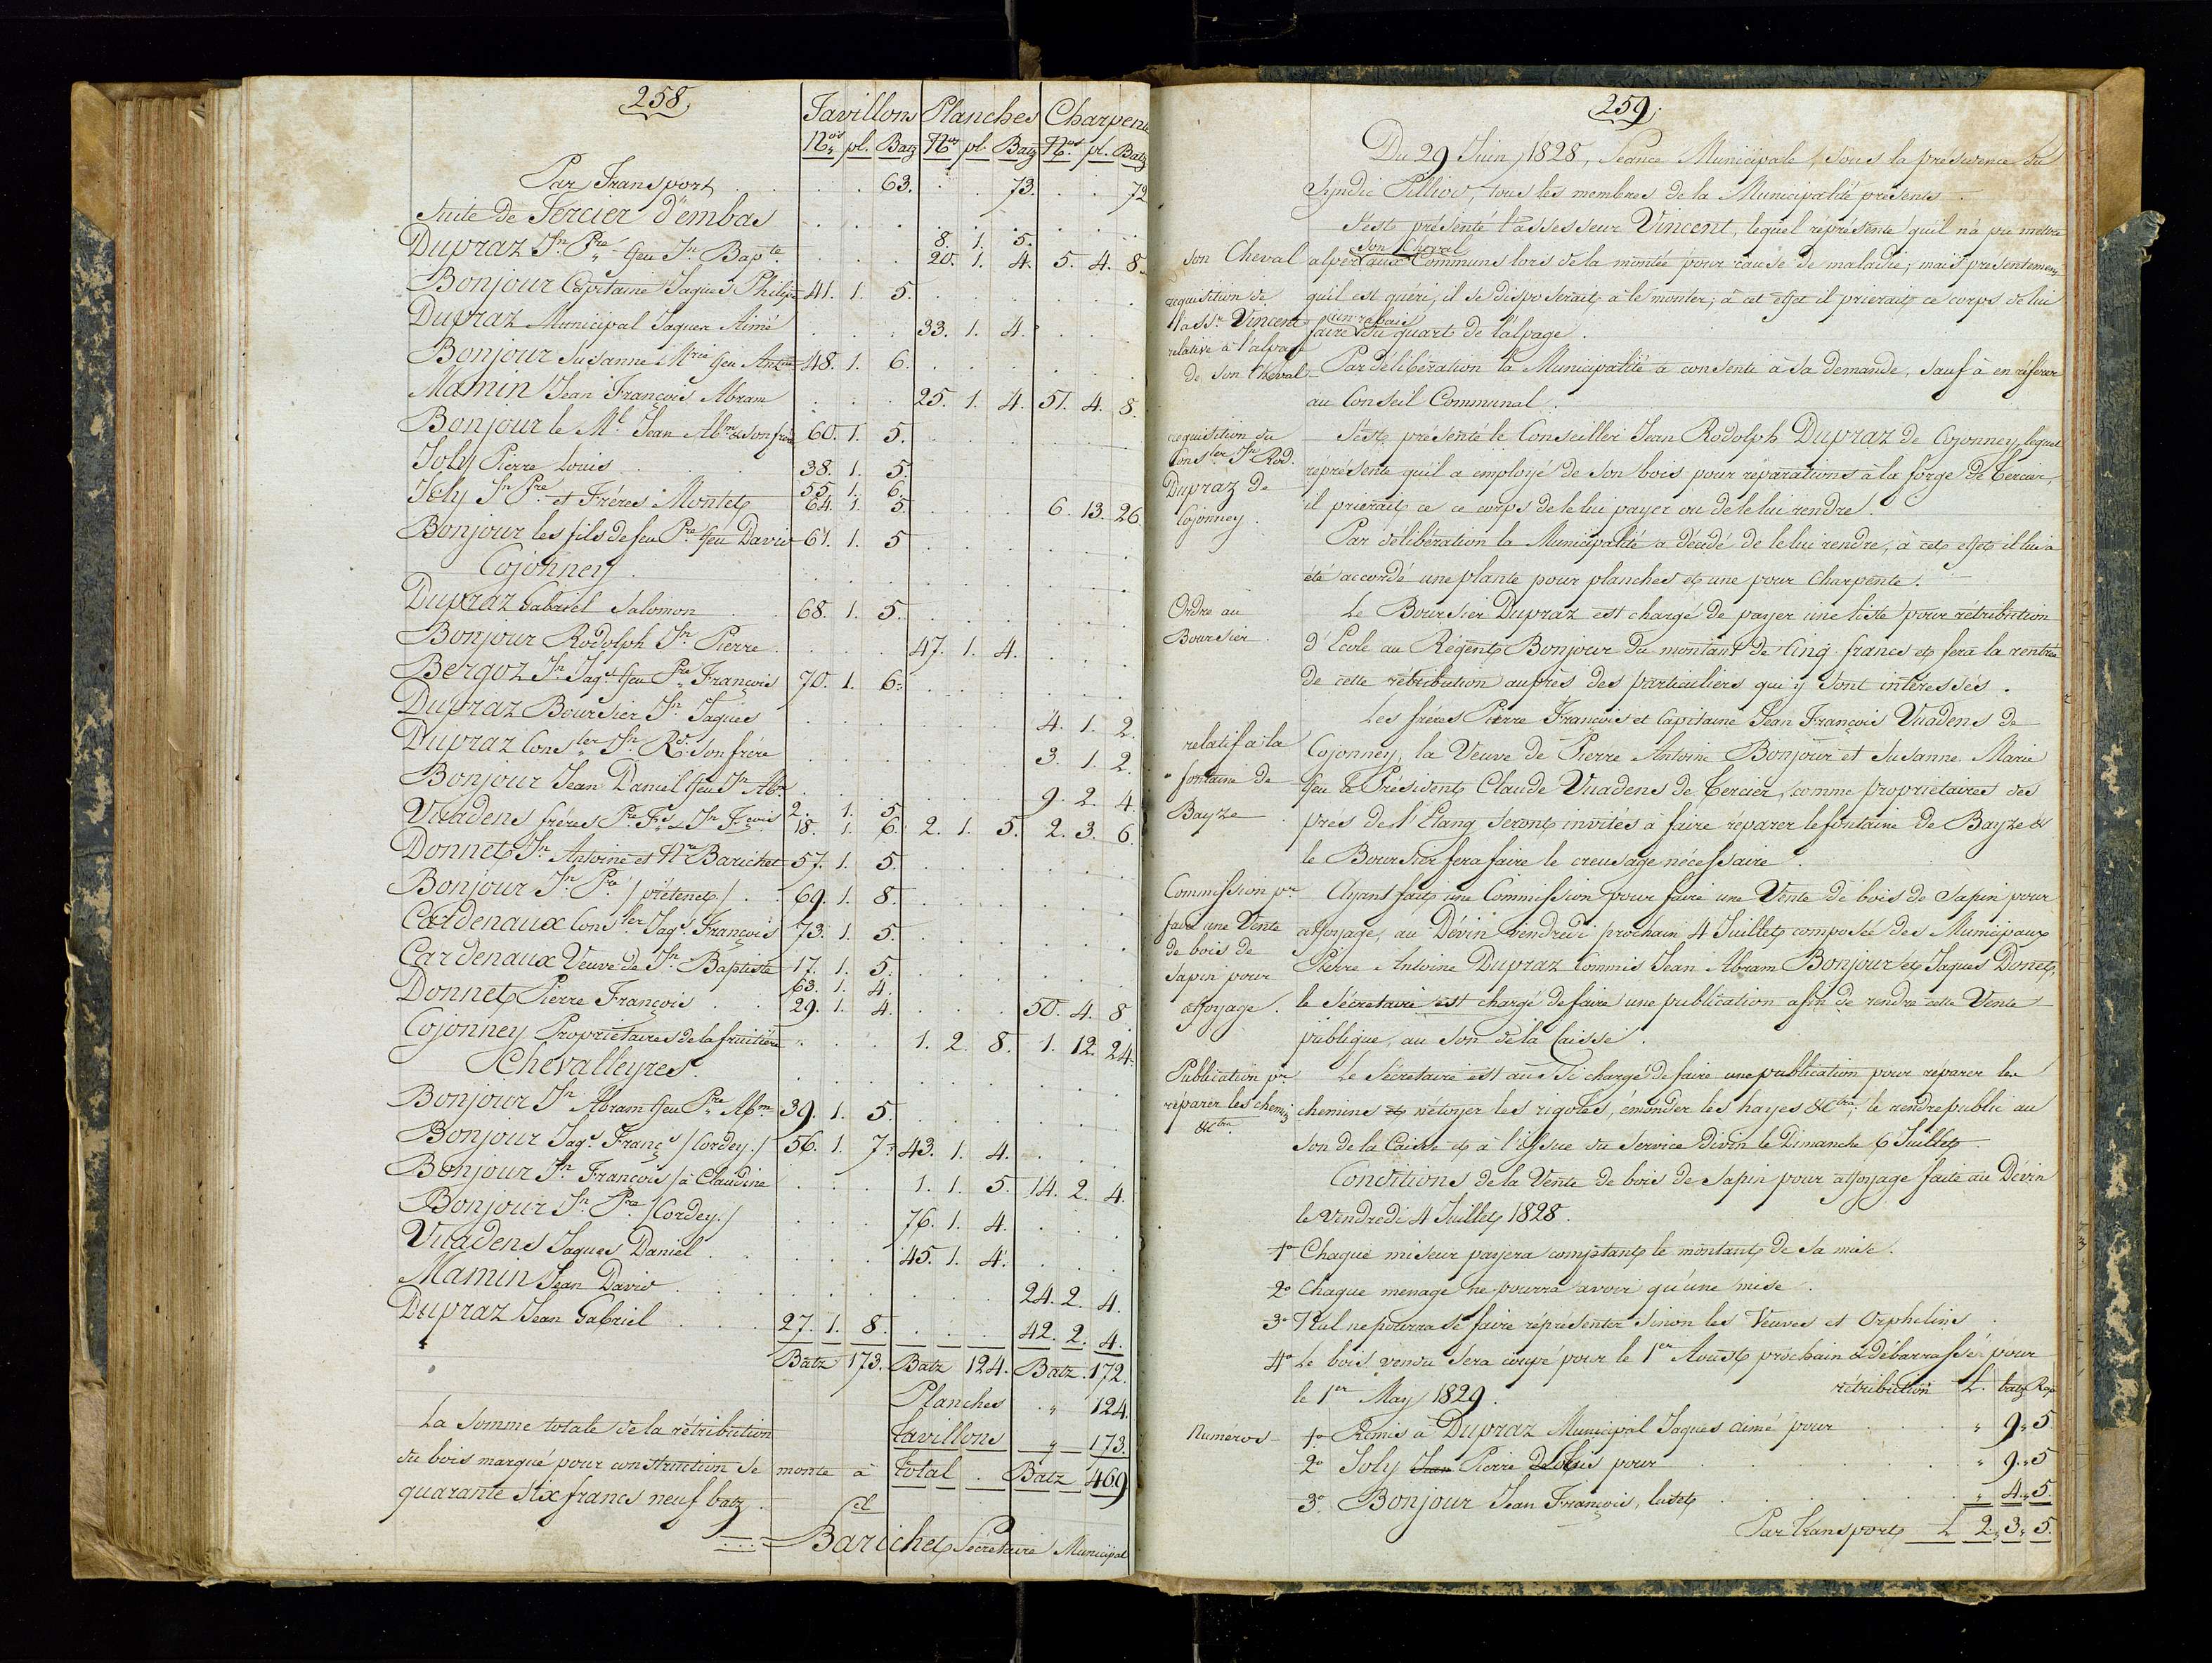 258.
Tavillons Planches Charpente
Nos pl. Batz Nos pl. Batz Nos pl. Batz
Par Transport . . . 63. . . 73. . . 72
Suite de Tercier d'embas
8. 1. 5.
Dupraz Jn Pre feu Jn Bapte. . . . 20. 1. 4. 5. 4. 8.
Bonjour Capitaine Jaques Philipe 41. 1. 5.
Dupraz Municipal Jaques Aimé . . . 33. 1. 4.
Bonjour Susanne Mrie feu Antne 48. 1. 6.
Mamin Jean François Abram . . . 25. 1. 4. 51. 4. 8.
Bonjour le Ml Jean Abm & son frère 60. 1. 5.
Joly Pierre Louis 38. 1. 5
55. 1. 6.
Joly Jn Pre et Frères Montet 64. 1. 5. . . . 6. 13. 26.
Bonjour les fils de feu Pre feu David 61. 1. 5
Cojonney.
Dupraz Gabriel Salomon 68. 1. 5.
Bonjour Rodolph Jn Pierre . . . 47. 1. 4.
Bergoz Jn Jaqs feu Pre François 70. 1. 6.
Dupraz Boursier Jn Jaques . . . 4. 1. 2.
Dupraz Consler Jn Rd. son frère . . . 3. 1. 2.
Bonjour Jean Daniel feu Jn Abm . . . 9. 2. 4.
2. 1. 5.
Vuadens frères Pre Fs & Jn Fçois 18. 1. 6. 2. 1. 5. 2. 3. 6.
Donnet Jn Antoine et Nre Barichet 57. 1. 5.
Bonjour Jn Pre / piétenet / . . 69. 1. 8.
Cardenaux Consler Jaqs. François 73. 1. 5.
Cardenaux Veuve de Jn Baptiste 17. 1. 5.
63. 1. 4.
Donnet Pierre François . . 29. 1. 4. . . . 50. 4. 8
Cojonney Propriétaires de la fruitière . . . 1. 2. 8. 1. 12. 24.
Chevalleyres.
Bonjour Jn Abram feu Pre Abm 39. 1. 5.
Bonjour Jaqs Françs / Cordey. / 56. 1. 7. 43. 1. 4.
Bonjour Jn François / à Claudine . . . 1. 1. 5. 14. 2. 4.
Bonjour Jn Pre / Cordey. / . . . 76. 1. 4.
Vuadens Jaques Daniel . . . 45. 1. 4.
Mamin Jean David . . . 24. 2. 4.
Dupraz Jean Gabriel . . . 27. 1. 8. . . . 42. 2. 4.
Batz 173. Batz 124. Batz. 172.
Planches . " 124.
La somme totale de la rétribution Tavillons " 173.
du bois marqué pour construction se monte à total . Batz 469
quarante six francs neuf batz.
Barichet Sécretaire Municipal
259.
Du 29 Juin 1828, Séance Municipale, sous la présidence du
Syndic Pilliod, tous les membres de la Municipalité présents.
S'est présenté l'assesseur Vincent, lequel réprésente qu'il n'a pu mettre
son Cheval
son Cheval alper aux Communs lors de la montée pour cause de maladie, mais presentement
requisition de qu'il est guéri, il se disposerait à le monter; à cet effet il prierait ce corps de lui
un rabais
l'assr Vincent faire du quart de l'alpage.
relative à l'alpage
de son Cheval Par délibération la Municipalité a consenti à sa demande, sauf à en référer
au Conseil Communal.
requisition du S'est présenté le Conseiller Jean Rodolph Dupraz de Cojonney, lequel
Consler Jn Rod. représente qu'il a employé de son bois pour réparations à la forge de Tercier,
Dupraz de il prierait ce ce corps de le lui payer ou de le lui rendre.
Cojonney. Par délibération la Municipalité a décidé de le lui rendre, à cet effet il lui a
été accordé une plante pour planches et une pour Charpente.
Ordre au Le Boursier Dupraz est chargé de payer une liste pour rétribution
Boursier d'Ecole au Régent Bonjour du montant de Cinq francs et fera la rentrée
de cette rétribution aupres des particuliers qui y sont intéressés.
Les frères Pierre François et Capitaine Jean François Vuadens de
relatif à la Cojonney, la Veuve de Pierre Antoine Bonjour et Susanne Marie
fontaine de feu le Président Claude Vuadens de Tercier, comme propriétaires des
Bayze prés de l'Etang seront invités à faire réparer le fontaine de Bayze &
le Boursier fera faire le creusage nécessaire.
Commission pr. Ayant fait une Commission pour faire une Vente de bois de Sapin pour
faire une Vente affoyage, au Dévin vendredi prochain 4 Juillet composée des Municipaux
de bois de Pierre Antoine Dupraz Commis Jean Abram Bonjour et Jaques Donet,
Sapin pour
affoyage. le Sécretaire est chargé de faire une publication afin de rendre cette Vente
publique, au son de la Caisse.
Publication pr. Le Sécretaire est aussi chargé de faire une publication pour réparer les
réparer les chemins chemins et nétoyer les rigoles, émonder les hayes &Ctra, le rendre public au
&Ctra son de la Caisse et à l'issue du Service divin le Dimanche 6 Juillet.
Conditions de la Vente de bois de Sapin pour affoyage faite au Dévin
le Vendredi 4 Juillet 1828.
1o Chaque miseur payera comptant le montant de sa mise.
2o Chaque menage ne pourra avoir qu'une mise.
3o Nul ne pourra se faire représenter sinon les Veuves et Orphelins.
4o Le bois vendu sera coupé pour le 1er Aoust prochain & débarrassé pour
le 1er May 1829. rétribution L. batz Rap
Numéros 1o Remis à Dupraz Municipal Jaques aimé pour . . . " 9 " 5
2o Joly Jean Pierre Louis pour . . . " 9 " 5
3o Bonjour Jean François, . . . " 4 " 5.
Par transport L 2 " 3 " 5.